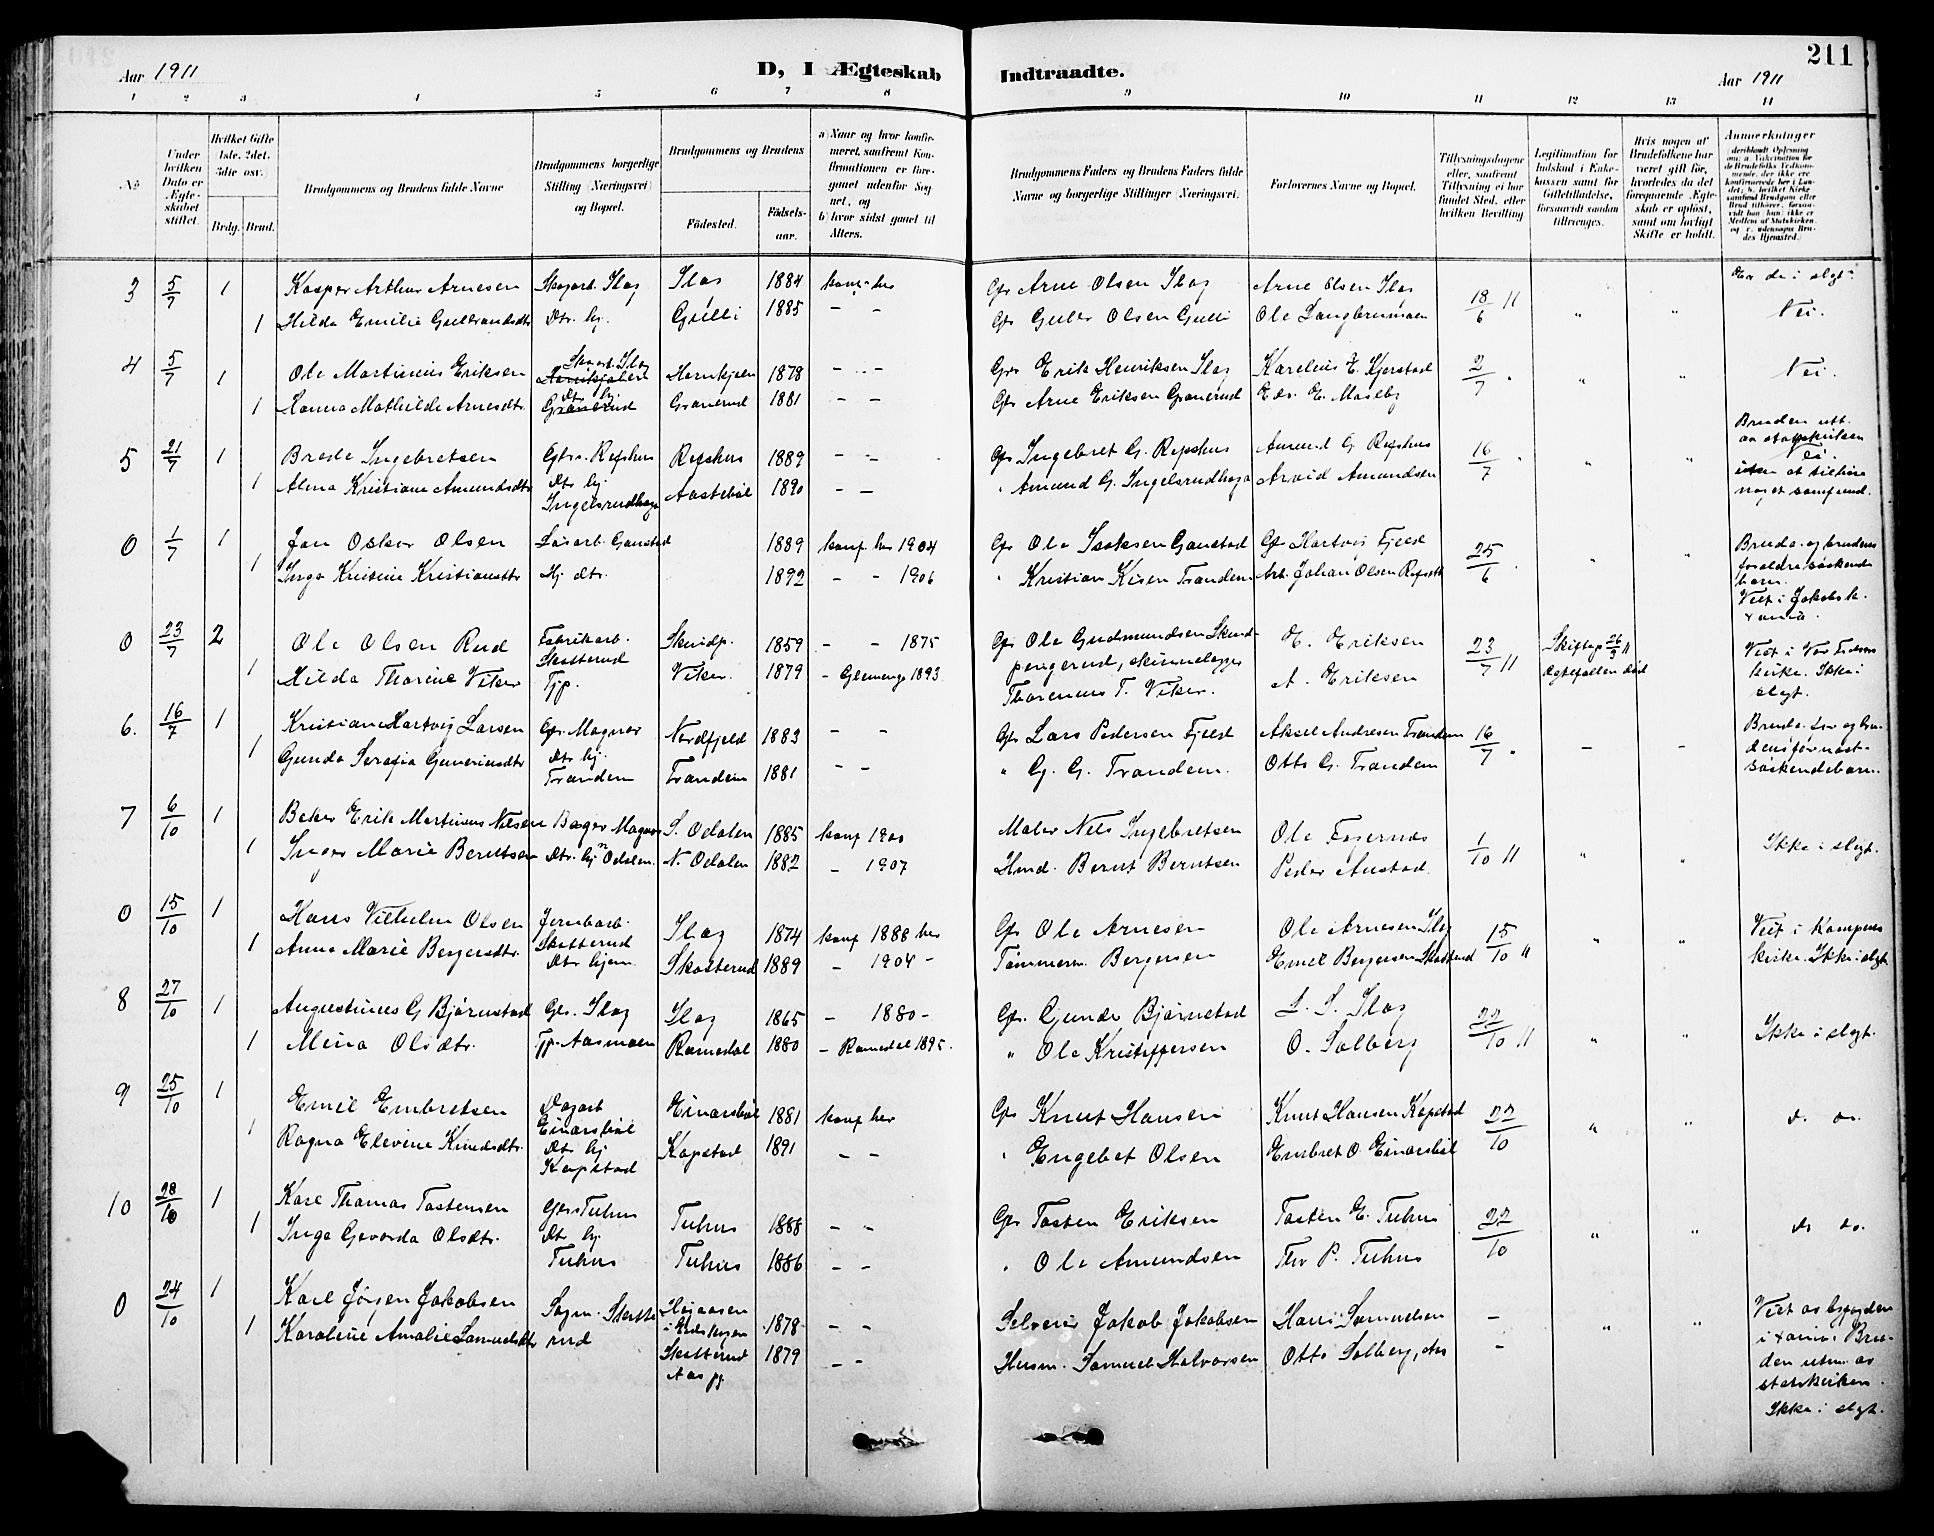 211
Aar 1911
D, I Ægteskab
Indtraadte.
Aar 1911
1 2 3 4 5 6 7 8 9 10 11 12 13 14
No.
Under hvilken Dato er Ægteskabet stiftet.
Hvilket Gifte 1ste, 2det, 3die osv.)
Brdg. Brud.
Brudgommens og Brudens fulde Navne
Brudgommens borgerlige Stilling (Næringsvei) og Bopæl.
Brudgommens og Brudens
Födested.
Födselsaar.
a) Naar og hvor konfirmeret, saafremt Konfirmationen er foregaaet udenfor Sognet, og
b) hvor sidst gaaet til Alters.
Brudgommens Faders og Brudens Faders fulde Navne og borgerlige Stillinger (Næringsvei).
Forlovernes Navne og Bopæl.
Tillysningsdagene eller, saafremt Tillysning ei har fundet Sted, efter hvilken Bevilling
Legitimation for Indskud i Enkekassen samt for Giftetilladelse, forsaavidt saadan tiltrænges.
Hvis nogen af Brudefolkene har været gift før, hvorledes da det foregaaende Ægteskab er opløst, samt om lovligt Skifte er holdt.
Anmerkninger
3 5/7 1 Kasper Arthur Arnesen Skogarb. Slag Slag 1884 konf. her Gbr Arne Olsen Slag Arne Olsen Slag 18/6 11 Er de i slegt?
1 Hilda Emilie Gulbrandsdtr Dtr. hj. Gulli 1885 – – Gbr Gulbr Olsen Gulli Ole Langbrumoen " " Nei.
4 5/7 1 Ole Martinius Eriksen Skogarb. Slag Hornkjølen 1878 – – Gbr Erik Henriksen Slag Karelius E. Kjerstad 2/7 " " Nei.
1 Hanna Mathilde Arnesdtr. Dtr. hj. Granerud Granerud 1881 – – Gbr Arne Eriksen Granerud Edv. E. Moseby
5 21/7 1 Brede Ingebretsen Gbrs. Repshus Repshus 1889 – – Gbr Ingebret G. Repshus Amund G. Repshus 16/7 " " Bruden utt. av statskirken
1 Alma Kristiane Amundsdtr Dtr hj. Ingelsrudhagen Aastebøl 1890 – – " Amund G. Ingelsrudhaga Arvid Amundsen Nei. uten at tilhøre noget samfund.
0 1/7 1 Jon Oskar Olsen Løsarb. Gaustad 1889 konf her 1904 Gbr Ole Isaksen Gaustad Gbr Hartvig Fjeld 25/6 " " Brudg. og brudens
1 Inga Kristine Kristiansdtr Hj dtr. 1892 – – 1906 " Kristian Kisen Tranden Arb. Johan Olsen foreldre søskendebarn. Viet i Jakobs k.
0 23/7 2 Ole Olsen Rud Fabrikarb. Skotterud 1859 – – 1875 Gbr Ole Gudmundsen E. Eriksen 23/7 11 Skiftep 26/3 11 Viet i Vor Frelsers
1 Hilda Thorine Viker Tjp. Viker. 1879 – Glemminge 1893 Thorenius T. Viker. A. Eriksen kirke. Ikke i slegt.
6. 16/7 1 Kristian Hartvig Larsen Gbr. Magnor Nordfjeld 1883 – – Gbr Lars Pedersen Fjeld Aksel Andresen Tranden 16/7 " – –
1 Gunda Serafia Guneriusdtr Dtr hj. Tranden Tranden 1881 – – " G. G. Tranden. Otto G. Tranden søskendebarn.
7 6/10 1 Baker Erik Martinius Nilsen Bager Magnor S. Odalen 1885 konf 1900 Maler Nils Ingebretsen Ole Fagernæs 1/10 11 " " Ikke i slegt.
1 Inger Marie Berntsen Dtr. hj. N Odalen. N. Odalen 1882 – 1907 Hmd. Bernt Berntsen Peder Austad
0 15/10 1 Hans Vilhelm Olsen Jernbarb. Skotterud Slag 1874 konf 1888 her Gbr Ole Arnesen Ole Arnesen Slag 15/10 11 " " Viet i Kampens
1 Anna Marie Bergersdtr. Dtr hjem. Skotterud 1889 – 1904 – Tømmerm. Bergersen Emil Bergersen Skotterud kirke. Ikke i slegt
8 27/10 1 Augustinus G Bjørnstad Gbr. Slag Slag 1865 – 1880 – Gbr. Gunde Bjørnstad L. S. Slag 22/10 11 " " Ikke i slegt.
1 Mina Olsdtr. Tjp. Aasmoen Romedal 1880 – Romedal 1895. " Ole Kristoffersen O. Solberg
9 25/10 1 Emil Embretsen Dagarb Einarsbøl Einarsbøl 1881 konf her Gbr Knut Hansen Knut Hansen Kopstad 22/10 " " d. o.
1 Ragna Elevine Knudsdtr. Dtr hj Kopstad Kopstad 1891 – – " Engebet Olsen Embret O. Einarsbøl
10 28/10 1 Karl Thomas Tostensen Gbrs Tuhus Tuhus 1888 – – Gbr Tosten Eriksen Tosten E. Tuhus 22/10 " " d. do.
1 Inga Gevorda Olsdtr. Dtr hj Tuhus Tuhus 1886 – – " Ole Amundsen Thv P. Tuhus
0 24/10 1 Karl Jørgen Jakobsen Sagm. Skotterud 1878 – – Selveier Jakob Jakobsen Hans Samuelsen – " " Viet av byfogden
1 Karoline Amalie Samuelsdtr Skotterud 1879 – – Husm. Samuel Halvorsen Otto Solberg, – i Xania. Bruden utm. av statskirken. Ikke i slegt.